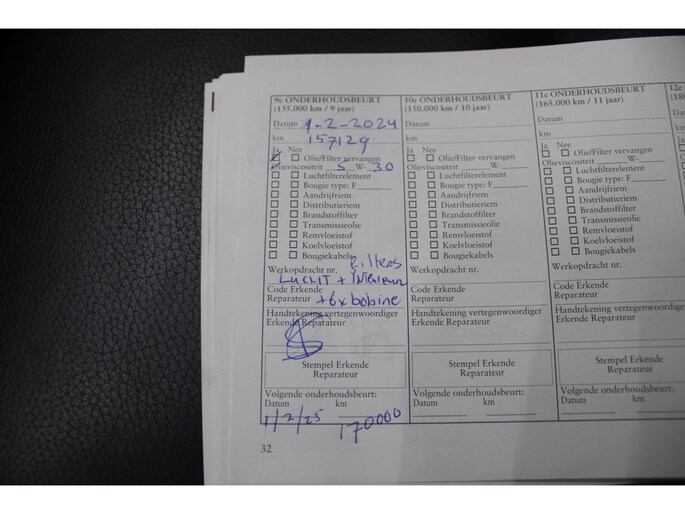 9e ONDERHOUDSBEURT
(135.000 km / 9 jaar)
Datum 1-2-2024
km 157129
Ja Nee
Olie/Filter vervangen
Olieviscositeit 5 W- 30
Luchtfilterelement
Bougie type: F
Aandrijfriem
Distributieriem
Brandstoffilter
Transmissieolie
Remvloeistof
Koelvloeistof
Bougiekabels
Werkopdracht nr. Filters
Lucht + Interieur
Code Erkende
Reparateur +6x bobine
Handtekening vertegenwoordiger
Erkende Reparateur
Stempel Erkende
Reparateur
Volgende onderhoudsbeurt:
Datum km
1/2/25 170000
32
10e ONDERHOUDSBEURT
(150.000 km / 10 jaar)
Datum
km
Ja Nee
Olie/Filter vervangen
Olieviscositeit W-
Luchtfilterelement
Bougie type: F
Aandrijfriem
Distributieriem
Brandstoffilter
Transmissieolie
Remvloeistof
Koelvloeistof
Bougiekabels
Werkopdracht nr.
Code Erkende
Reparateur
Handtekening vertegenwoordiger
Erkende Reparateur
Stempel Erkende
Reparateur
Volgende onderhoudsbeurt:
Datum km
11e ONDERHOUDSBEURT
(165.000 km / 11 jaar)
Datum
km
Ja Nee
Olie/Filter vervangen
Olieviscositeit W-
Luchtfilterelement
Bougie type: F
Aandrijfriem
Distributieriem
Brandstoffilter
Transmissieolie
Remvloeistof
Koelvloeistof
Bougiekabels
Werkopdracht nr.
Code Erkende
Reparateur
Handtekening vertegenwoordiger
Erkende Reparateur
Stempel Erkende
Reparateur
Volgende onderhoudsbeurt:
Datum km
12e
(180
Datum
km
Ja